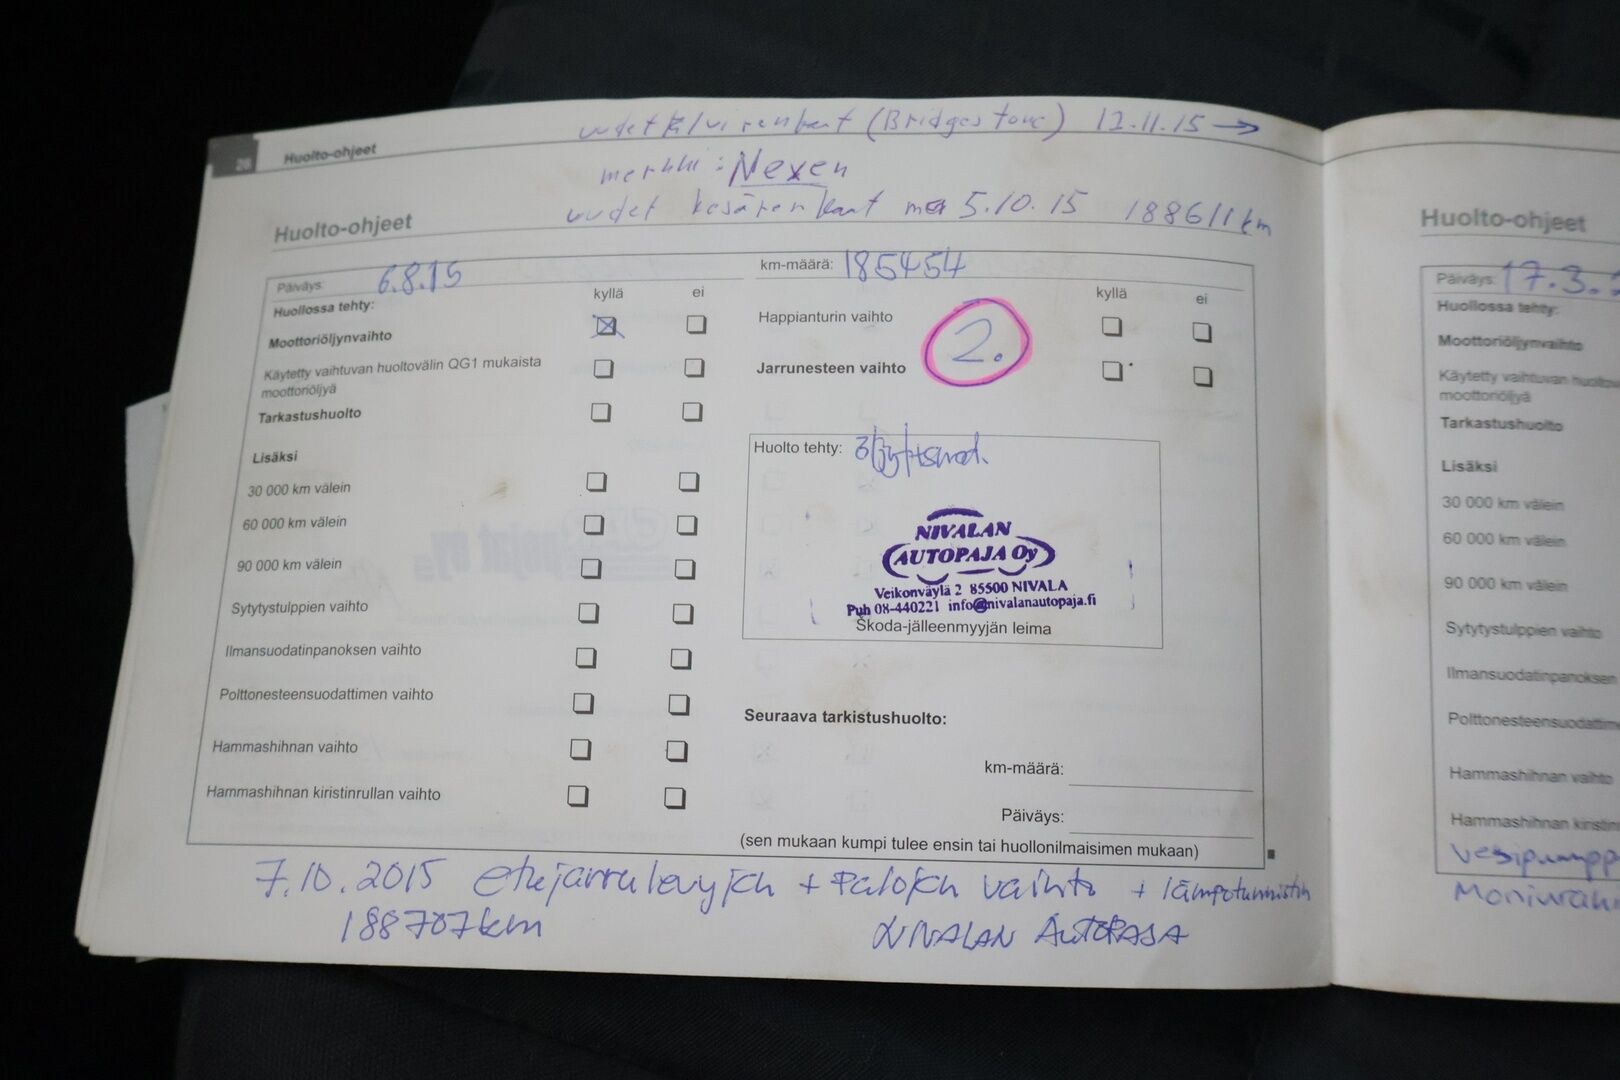 uudet talvirenkaat (Bridgestone) 12.11.15 →
28 Huolto-ohjeet
merkki: Nexen
uudet kesärenkaat 5.10.15 188611 km
Huolto-ohjeet
Päiväys: 6.8.15 km-määrä: 185454
Huollossa tehty: kyllä ei
Moottoriöljynvaihto
Käytetty vaihtuvan huoltovälin QG1 mukaista
moottoriöljyä
Tarkastushuolto
Lisäksi
30 000 km välein
60 000 km välein
90 000 km välein
Sytytystulppien vaihto
Ilmansuodatinpanoksen vaihto
Polttonesteensuodattimen vaihto
Hammashihnan vaihto
Hammashihnan kiristinrullan vaihto
kyllä ei
Happianturin vaihto
2.
Jarrunesteen vaihto
Huolto tehty:
NIVALAN
AUTOPAJA Oy
Veikonväylä 2 85500 NIVALA
Puh 08-440221 info@nivalanautopaja.fi
Škoda-jälleenmyyjän leima
Seuraava tarkistushuolto:
km-määrä:
Päiväys:
(sen mukaan kumpi tulee ensin tai huollonilmaisimen mukaan)
7.10.2015 etujarrulevyjen + palojen vaihto + lämpötunnistin
188707km NIVALAN AUTOPAJA
Huolto-ohjeet
Päiväys: 17.3.
Huollossa tehty:
Moottoriöljynvaihto
Käytetty vaihtuvan huoltov
moottoriöljyä
Tarkastushuolto
Lisäksi
30 000 km välein
60 000 km välein
90 000 km välein
Sytytystulppien vaihto
Ilmansuodatinpanoksen
Polttonesteensuodattim
Hammashihnan vaihto
Hammashihnan kiristin
vesipumpp
Moniura